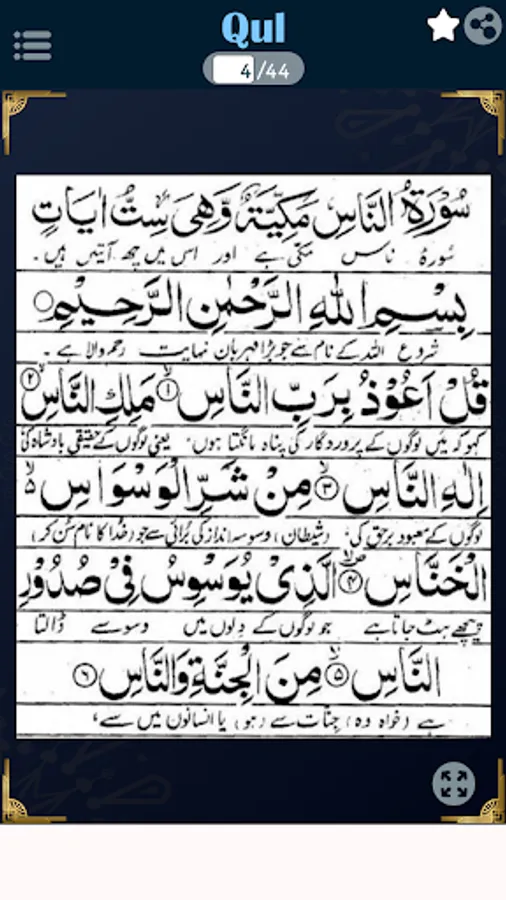 Qul
4/44
سُوْرَةُ النَّاسِ مَكِّيَّةٌ وَّهِيَ سِتُّ اٰيَاتٍ
سُورۂ ناس مکّی ہے اور اس میں چھ آیتیں ہیں۔
بِسْمِ اللهِ الرَّحْمٰنِ الرَّحِيْمِ ○
شروع اللہ کے نام سے جو بڑا مہربان نہایت رحم والا ہے۔
قُلْ اَعُوْذُ بِرَبِّ النَّاسِ ۙ﴿۱﴾ مَلِكِ النَّاسِ ۙ﴿۲﴾
کہو کہ میں لوگوں کے پروردگار کی پناہ مانگتا ہوں۔ یعنی لوگوں کے حقیقی بادشاہ کی
اِلٰهِ النَّاسِ ۙ﴿۳﴾ مِنْ شَرِّ الْوَسْوَاسِ ۙ۬
لوگوں کے معبود برحق کی۔ (شیطان) وسوسہ انداز کی بُرائی سے جو (خُدا کا نام سُن کر)
الْخَنَّاسِ ۪ۙ﴿۴﴾ الَّذِيْ يُوَسْوِسُ فِيْ صُدُوْرِ
پیچھے ہٹ جاتا ہے جو لوگوں کے دِلوں میں وسوسے ڈالتا
النَّاسِ ۙ﴿۵﴾ مِنَ الْجِنَّةِ وَالنَّاسِ ﴿۶﴾
ہے (خواہ وہ) جِنّات سے (ہو) یا انسانوں میں سے،